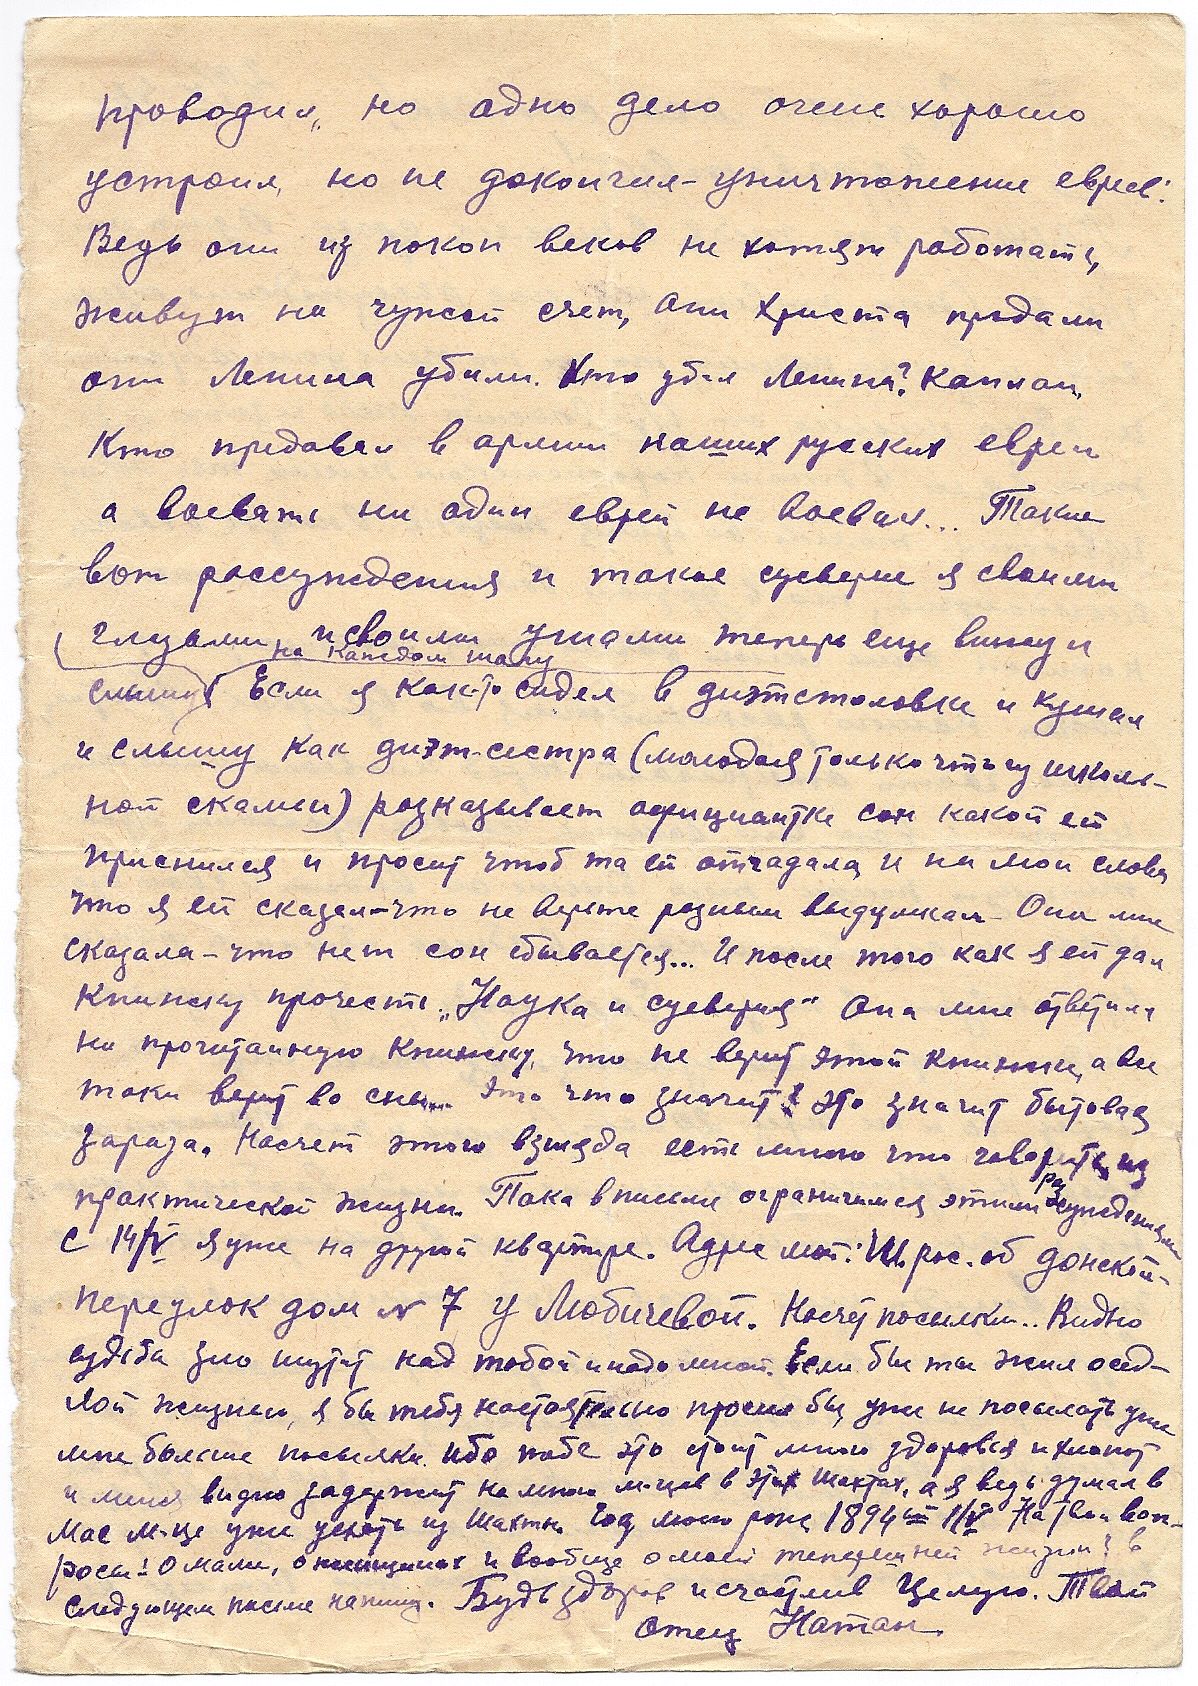 проводил, но одно дело очень хорошо
устроил, но не докончил - уничтожение евреев!
Ведь они из покон веков не хотят работать,
живут на чужой счет, они Христа продали
они Ленина убили. Кто убил Ленина? Каплан,
Кто предавал в армии наших русских евреи
а воевать ни один еврей не воевал... Такие
вот рассуждения и такое суеверие я своими
глазами и своими ушами теперь еще вижу и
на каждом шагу
слышу Если я как-то сидел в диэтстоловке и кушал
и слышу как диэт-сестра (молодая только что из школь-
ной скамьи) розказывает официантке сон какой ей
приснился и просит чтоб та ей отгадала и на мои слова
что я ей сказал - что не верьте разным выдумкам - Она мне
сказала - что нет сон сбывается... И после того как я ей дал
книжку прочесть „Наука и суеверия" Она мне ответила
на прочитанную книжку, что не верит этой книжке, а все
таки верит во сны... Это что значит? это значит бытовая
зараза. Насчет этого взгляда есть много что говорить из
практической жизни. Пока в письме ограничимся этими разсуждениями
С 14/V я уже на другой квартире. Адрес мой: Ш. рос. об донской-
переулок дом № 7 у Любичевой. Насчет посылки... Видно
судьба зло шутит над тобой и надо мной. Если бы ты жил осед-
лой жизнью, я бы тебя настоятельно просил бы уже не посылать уже
мне больше посылки ибо тебе это стоит много здоровья и хлопот
и меня видно задержит на много м-цев в этих Шахтах, а я ведь думал в
Мае м-це уже уехать из Шахты. Год моего рожд 1894 1/V На твои воп-
росы: О маме, о женщинах и вообще о моей теперешней жизни в
следующем письме напишу. Будь здоров и счастлив Целую. Твой
отец Натан.